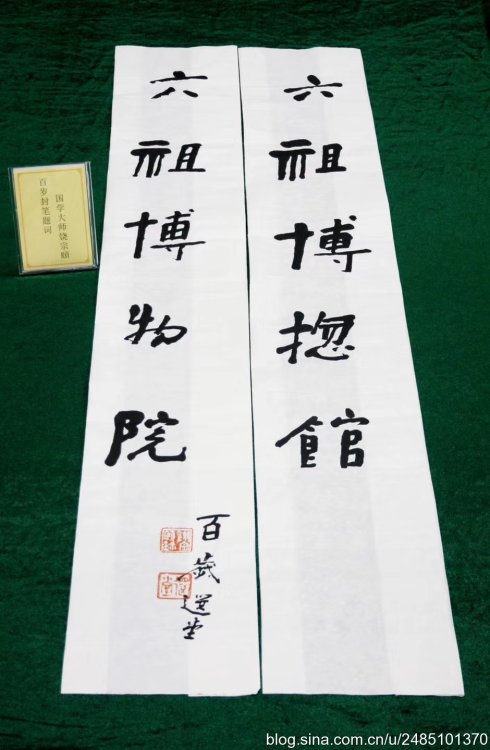 六祖博揔館
六祖博物院
百歲選堂
国学大师饶宗颐
百岁封笔题词
blog.sina.com.cn/u/2485101370